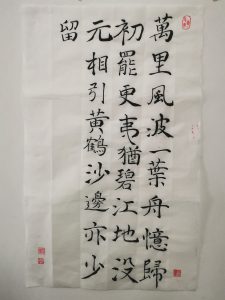 萬里風波一葉舟憶歸
初罷更夷猶碧江地没
元相引黃鶴沙邊亦少
留